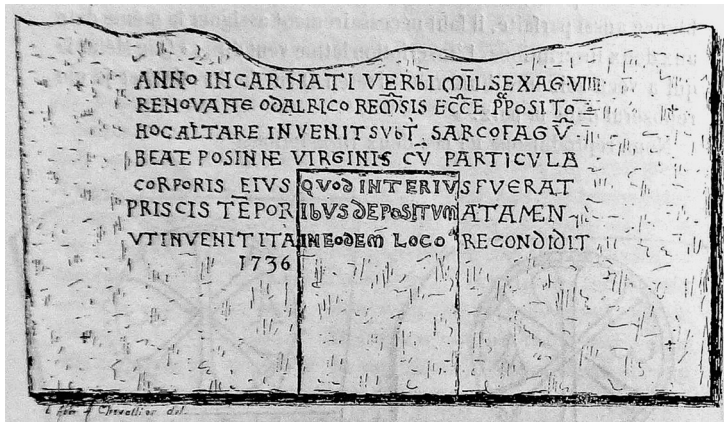 ANNO INCARNATI VERbI MĪL SEXAG VIIII
RENOVANTE ODALRICO REM̄SIS EC̄CE P̄POSITO
HOC ALTARE INVENIT SVbT̄ SARCOFAGV̄
BEATE POSINNE VIRGINIS CV̄ PARTICVLA
CORPORIS EIVS QVOD INTERIVS FVERAT
PRISCIS TĒPORIbVS DEPOSITVM ATAMEN
VT INVENIT ITA IN EODEM LOCO RECONDIDIT
1736
Chevallier del.